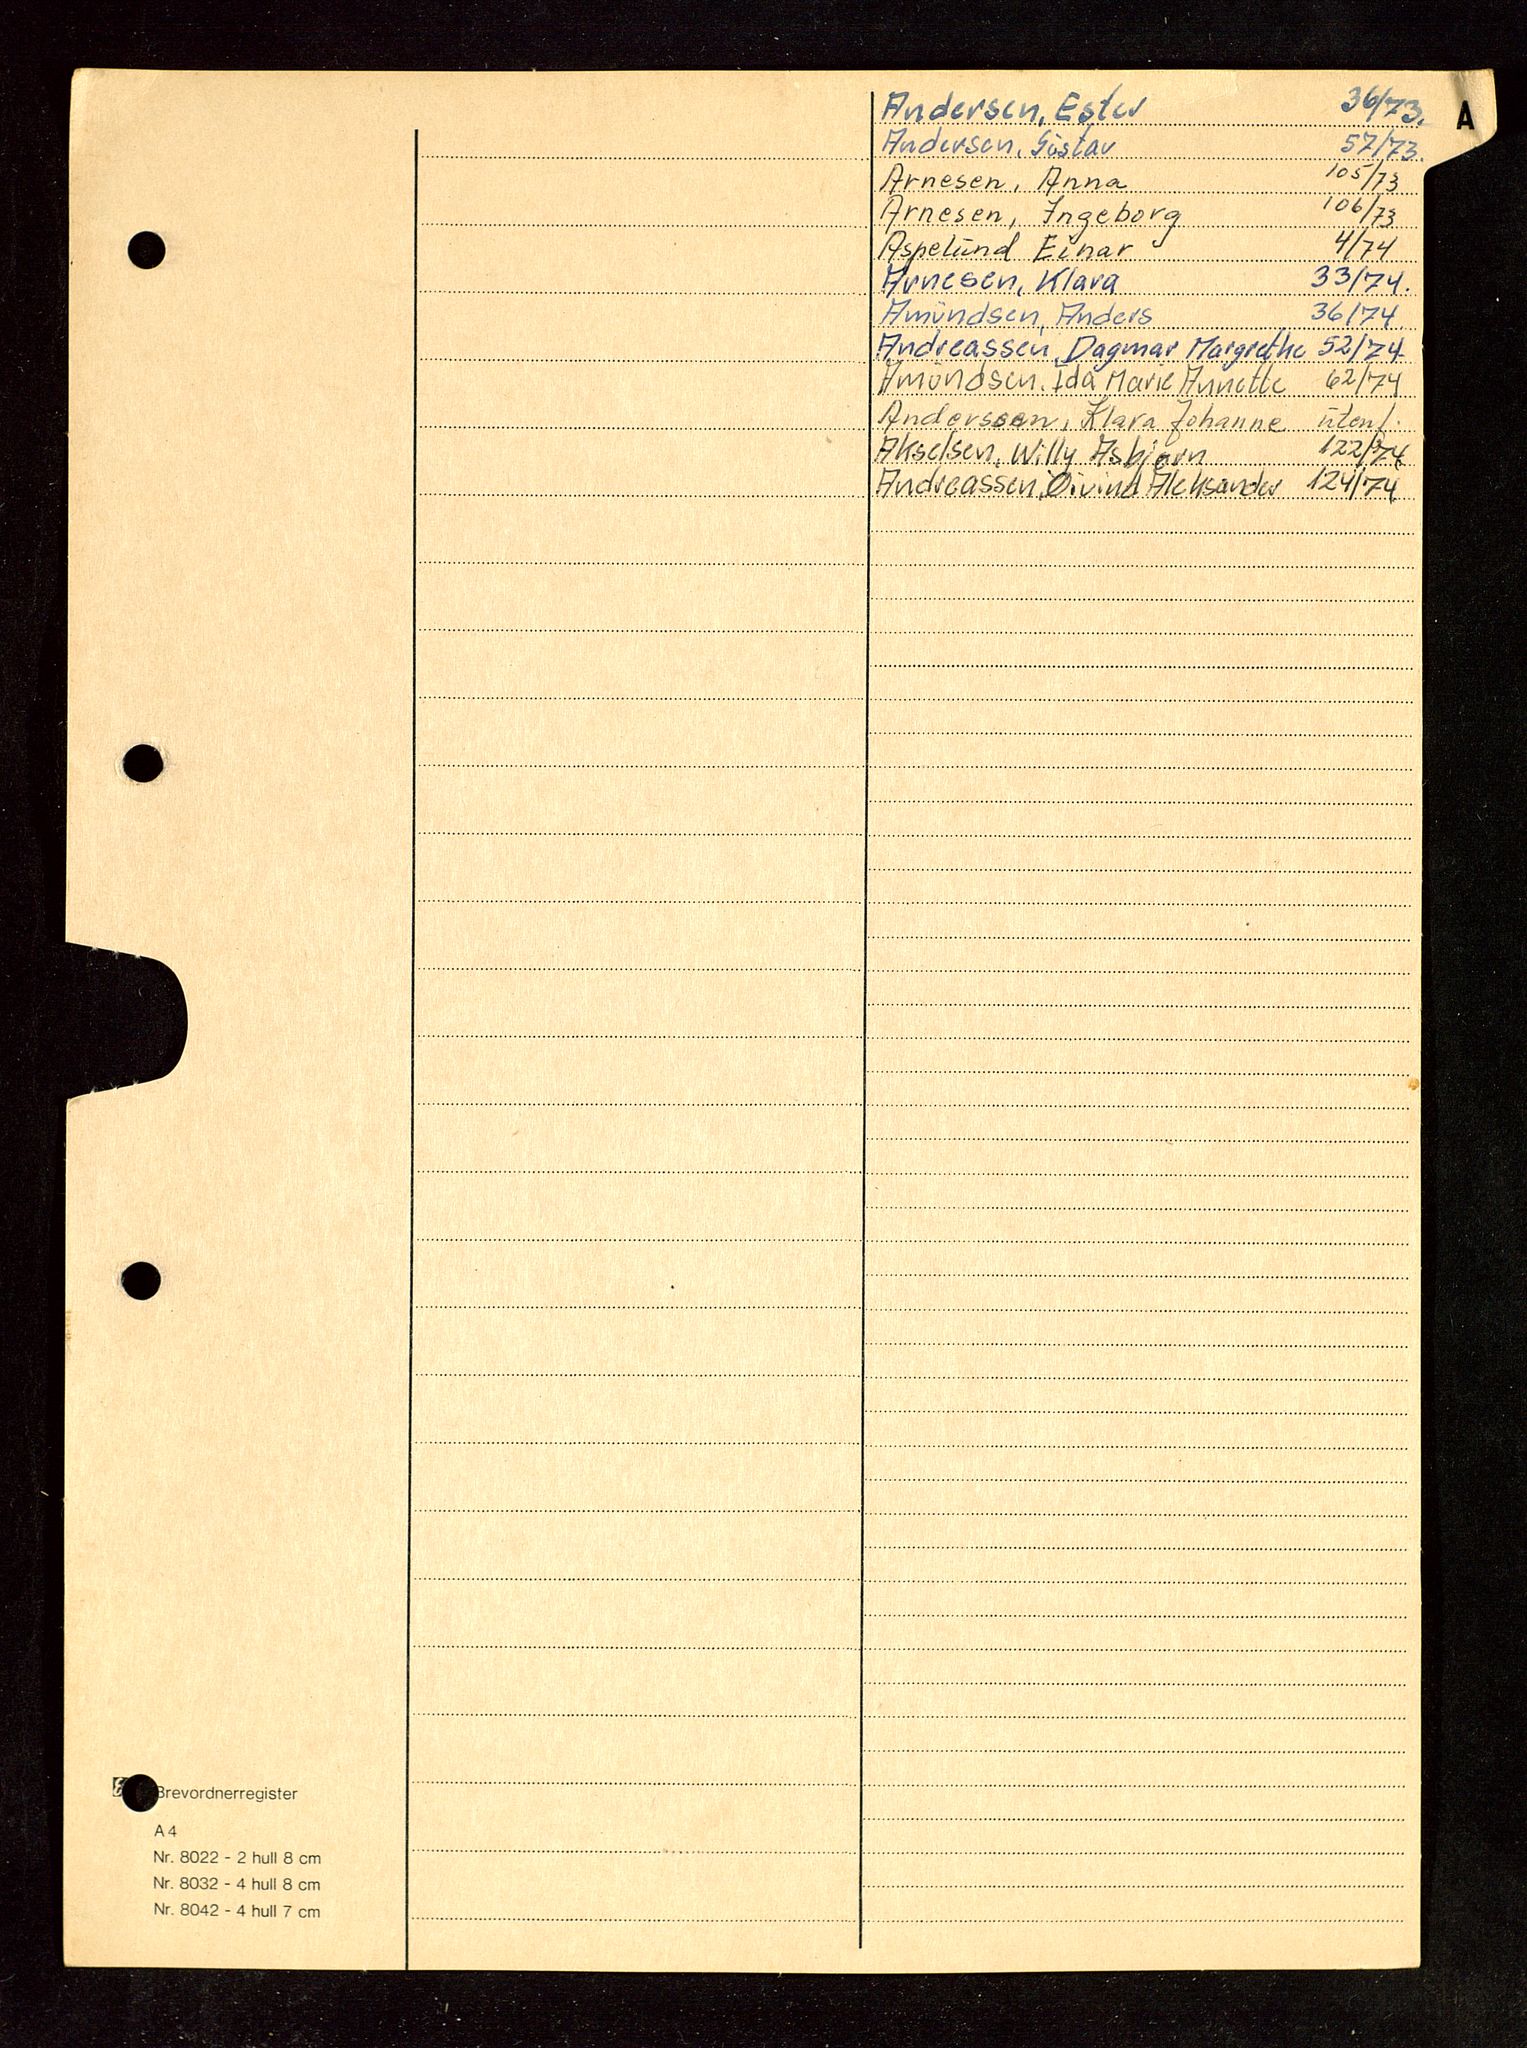 A
Andersen, Ester 36/73.
Andersen, Gustav 57/73.
Arnesen, Anna 105/73
Arnesen, Ingeborg 106/73
Aspelund Einar 4/74
Arnesen, Klara 33/74.
Amundsen, Anders 36/74.
Andreassen, Dagmar Margrethe 52/74
Amundsen, Ida Marie Annette 62/74
Anderssen, Klara Johanne utenf.
Akselsen, Willy Asbjørn 122/74
Andreassen, Øivind Aleksander 124/74
Brevordnerregister
A 4
Nr. 8022 - 2 hull 8 cm
Nr. 8032 - 4 hull 8 cm
Nr. 8042 - 4 hull 7 cm